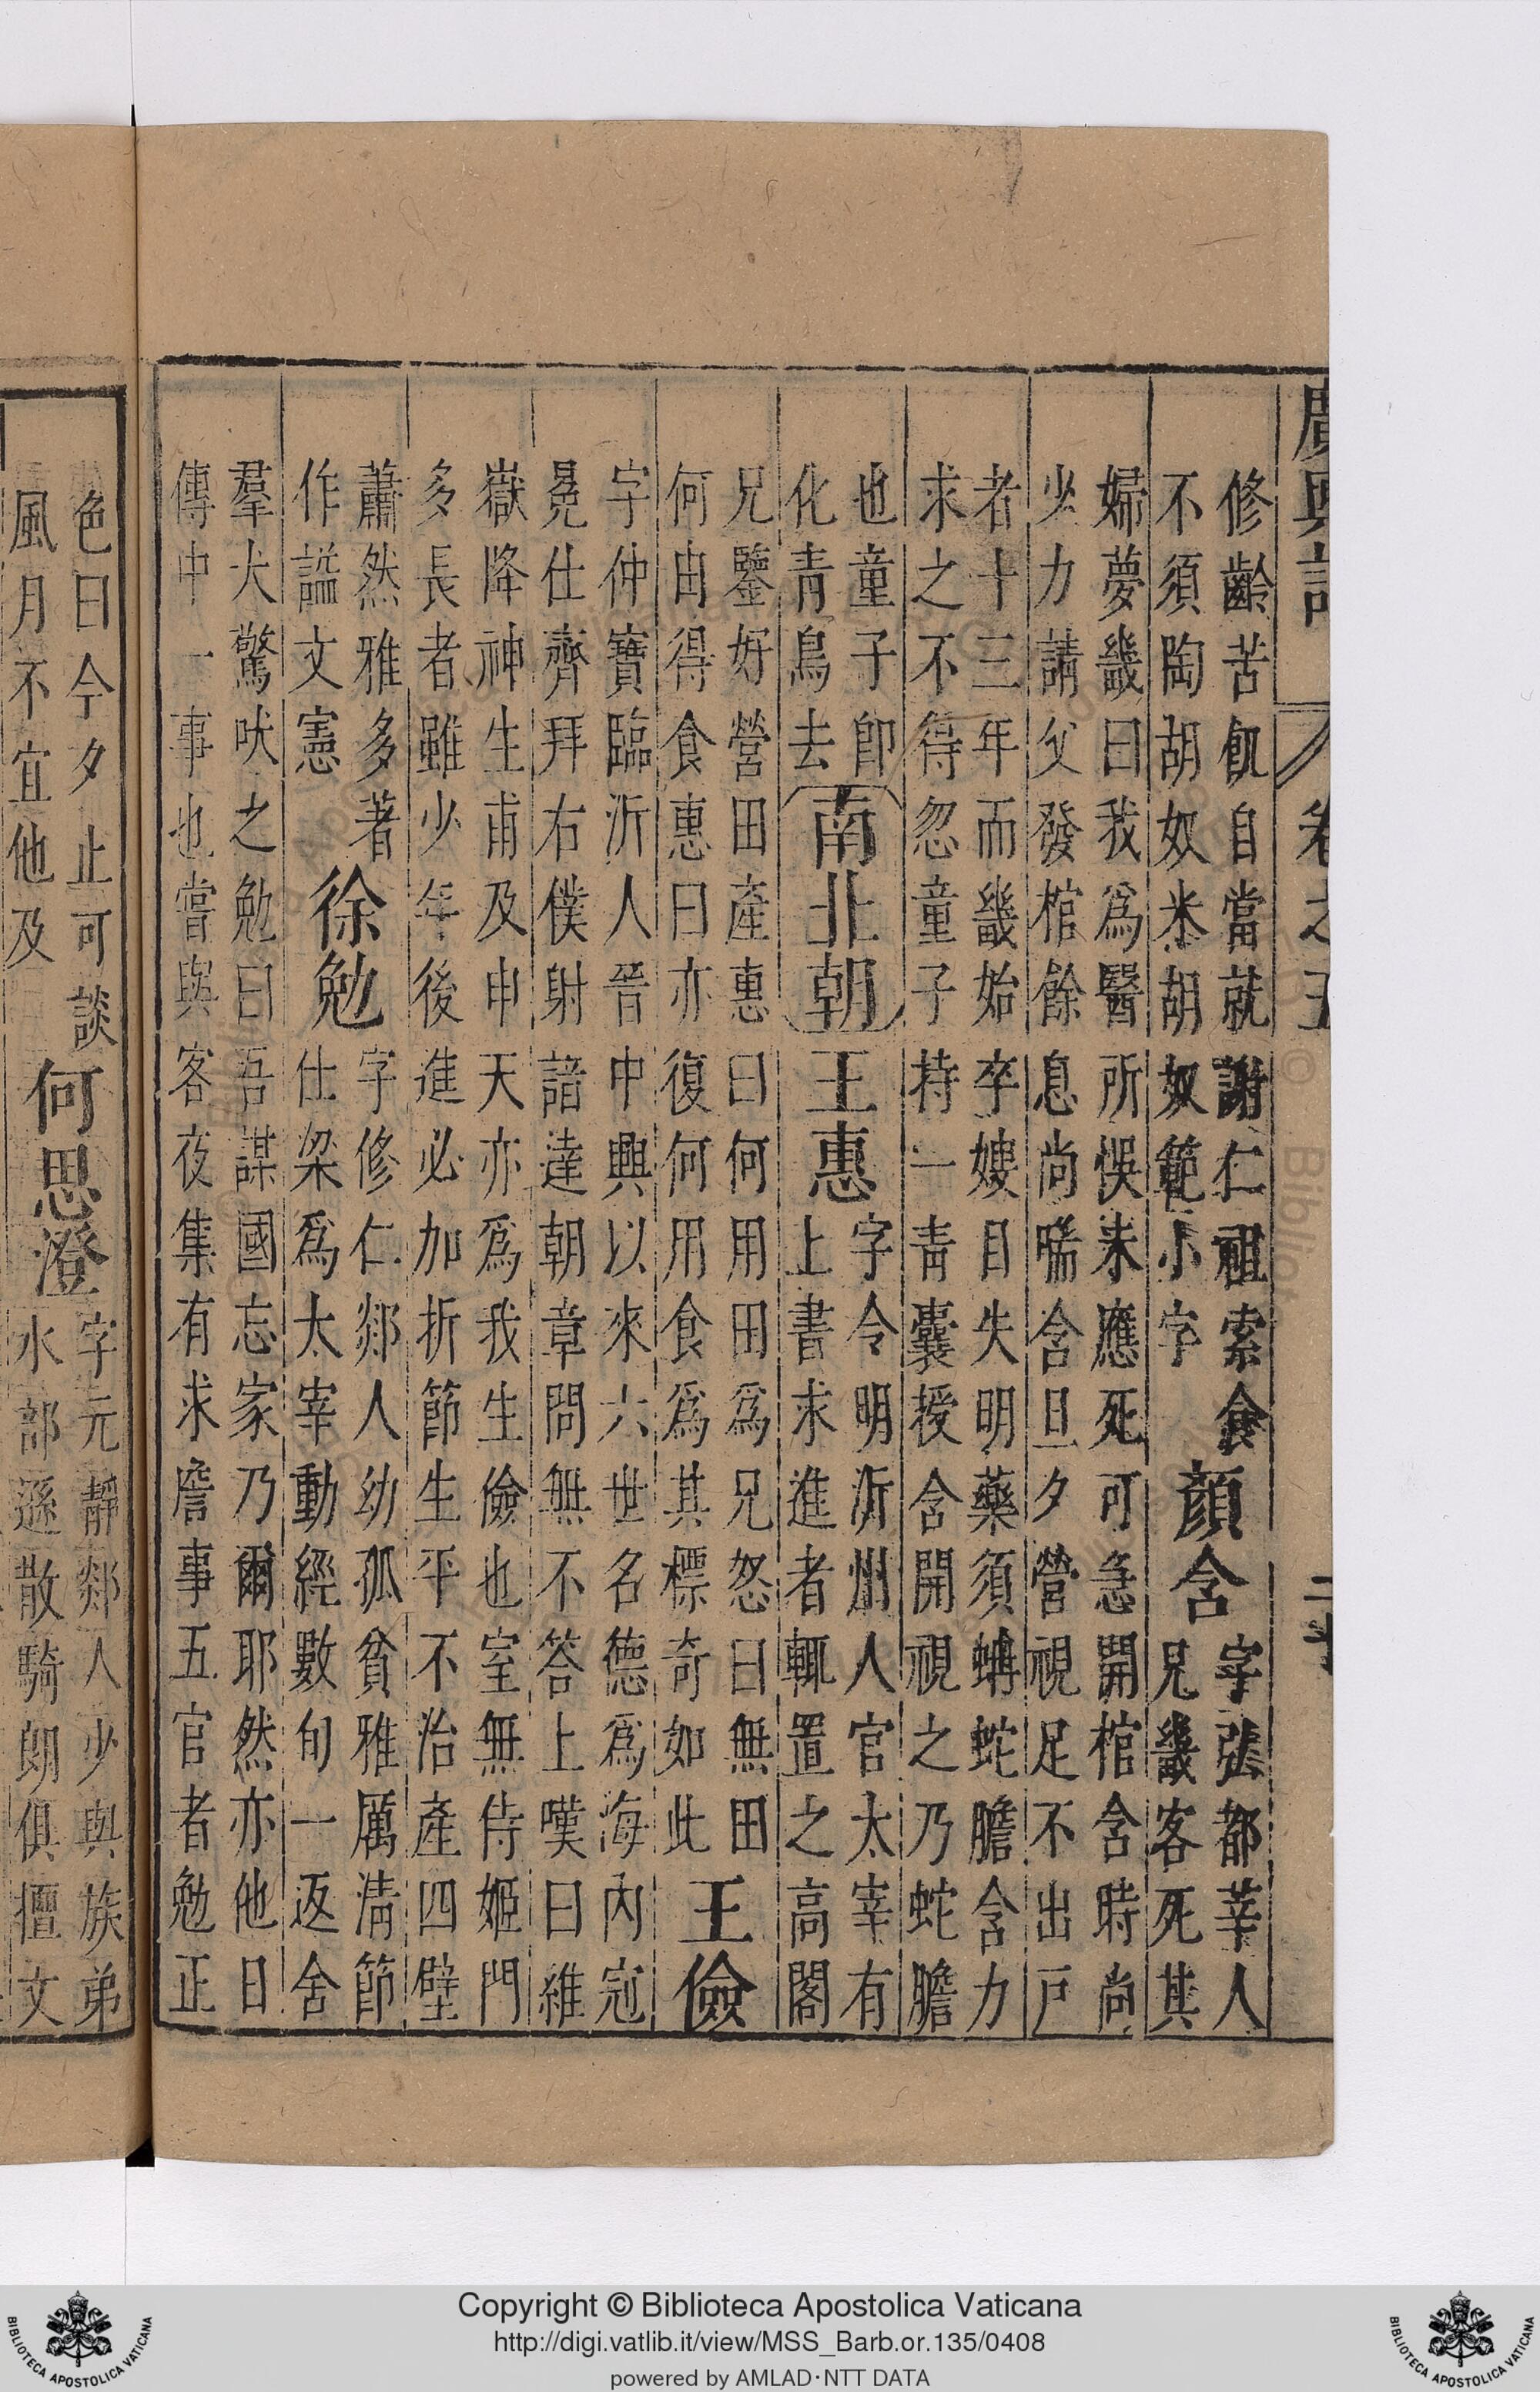 廣輿記
卷之五
修齡苦飢自當就謝仁祖索食
不須陶胡奴米胡奴範小字
顏含
字弘都莘人
兄畿客死其
婦夢畿曰我爲醫所悞未應死可急開棺含時尚
少力請父發棺餘息尚喘含旦夕營視足不出戶
者十三年而畿始卒嫂目失明藥須蚺蛇膽含力
求之不得忽童子持一青囊授含開視之乃蛇膽
也童子卽
化青鳥去
南北朝
王惠
字令明沂州人官太宰有
上書求進者輒置之高閣
兄鑒好營田產惠曰何用田爲兄怒曰無田
何由得食惠曰亦復何用食爲其標奇如此
王儉
字仲寶臨沂人晉中興以來六世名德爲海內冠
冕仕齊拜右僕射諳達朝章問無不答上嘆曰維
嶽降神生甫及申天亦爲我生儉也室無侍姬門
多長者雖少年後進必加折節生平不治產四壁
蕭然雅多著
作謚文憲
徐勉
字修仁郯人幼孤貧雅厲清節
仕梁爲太宰動經數旬一返舍
羣犬驚吠之勉曰吾謀國忘家乃爾耶然亦他日
傳中一事也嘗與客夜集有求詹事五官者勉正
色曰今夕止可談
風月不宜他及
何思澄
字元靜郯人少與族弟
水部遜散騎朗俱擅文
Copyright © Biblioteca Apostolica Vaticana
http://digi.vatlib.it/view/MSS_Barb.or.135/0408
powered by AMLAD·NTT DATA
BIBLIOTECA APOSTOLICA VATICANA
BIBLIOTECA APOSTOLICA VATICANA